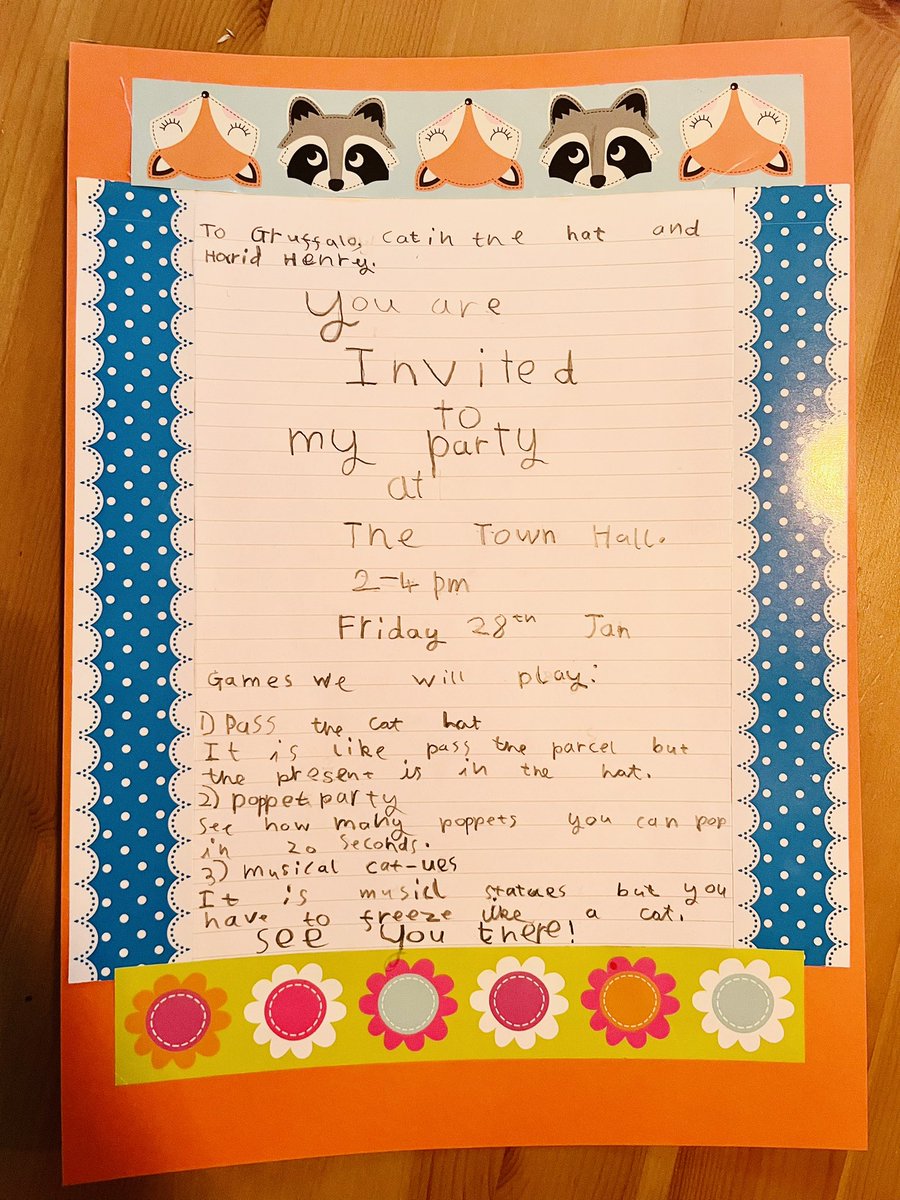 To Gruffalo, Cat in the hat and
Horid Henry.
You are
Invited
to
my party
at
The Town Hall.
2-4 pm
Friday 28th Jan
Games we will play:
1) Pass the cat hat
It is like pass the parcel but
the present is in the hat.
2) poppet party
See how many poppets you can pop
in 20 seconds.
3) musical cat-ues
It is musicl statues but you
have to freeze like a cat.
See you there!